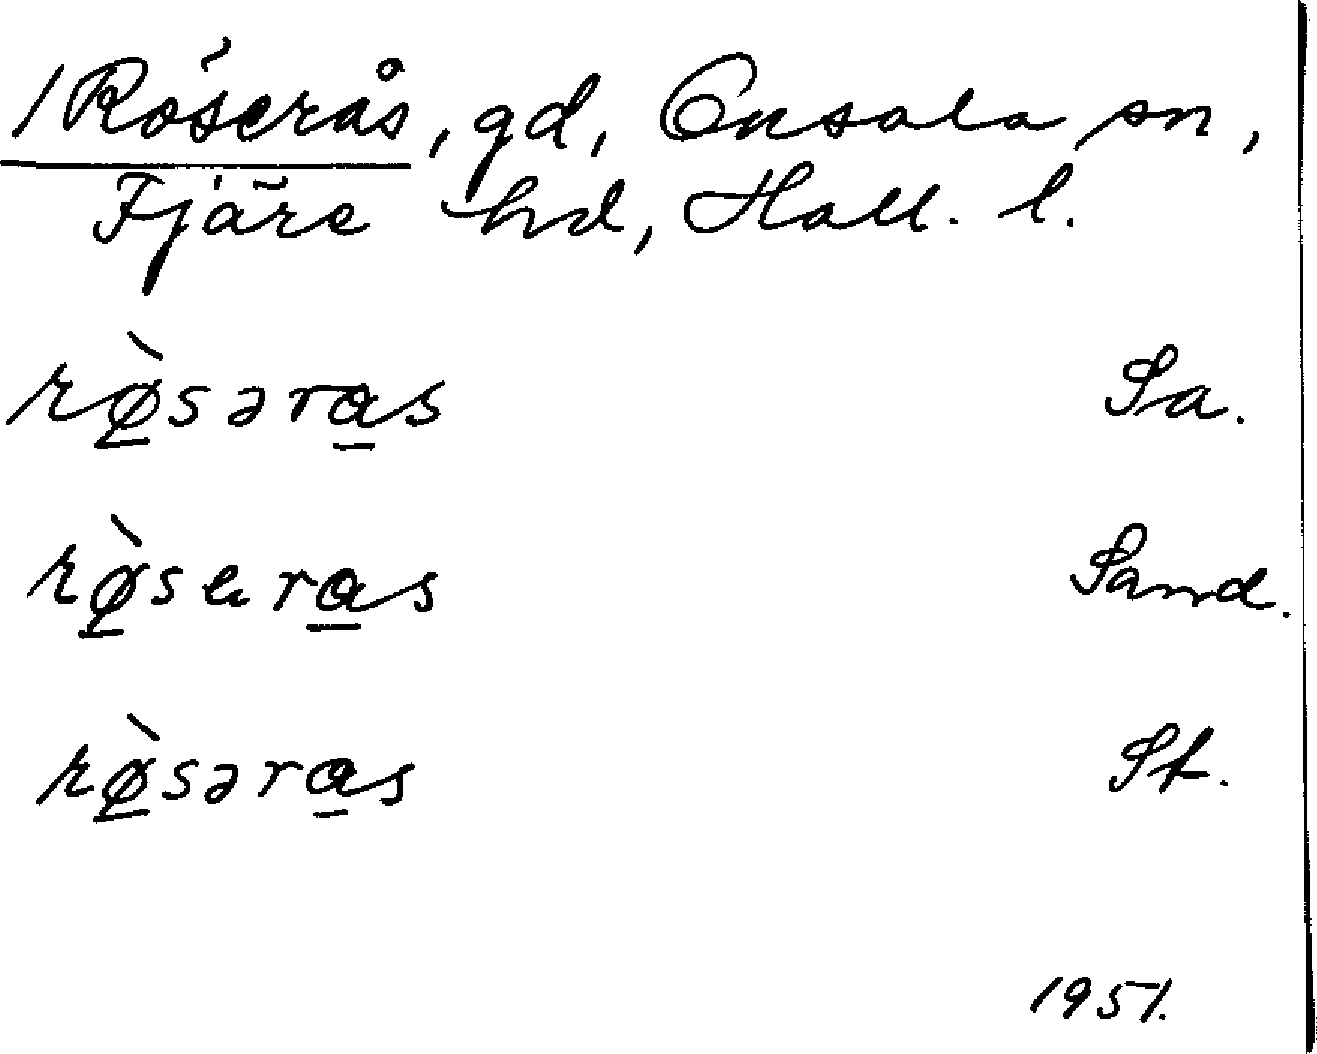 /Röserås, gd, Onsala sn,
Fjäre hd, Hall. l.
rø̱̀səra̱s Sa.
rø̱̀sera̱s Sand.
rø̱̀səra̱s St.
1951.